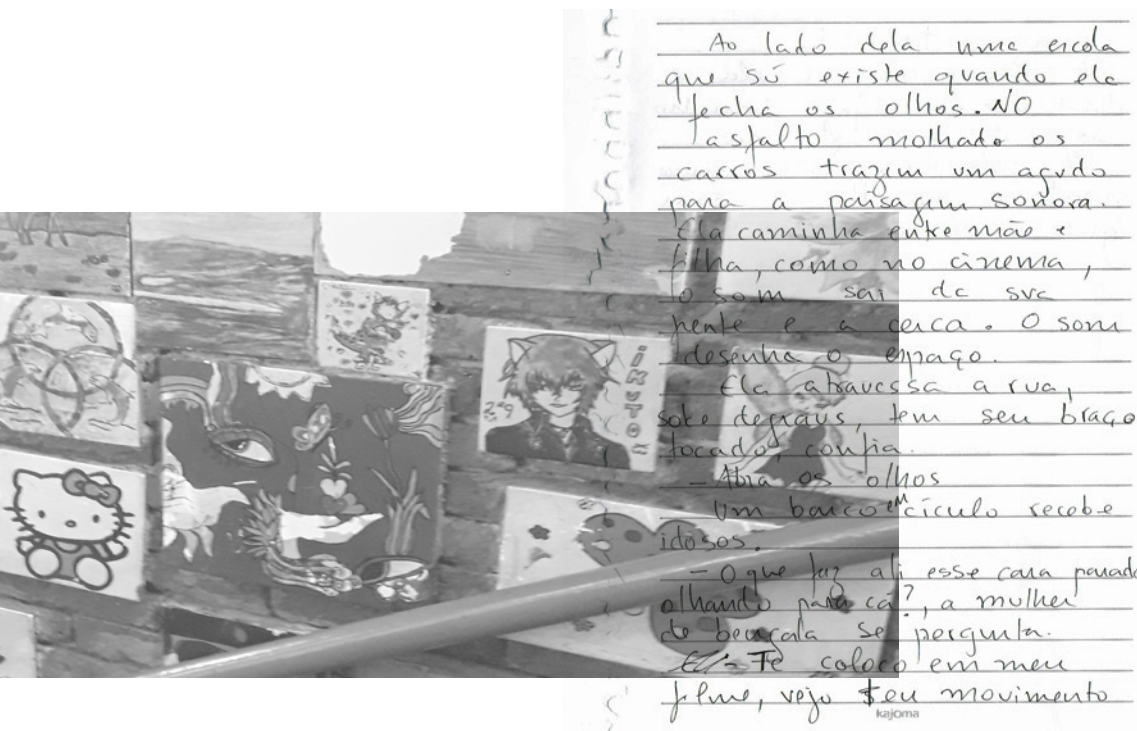 Ao lado dela uma escola
que só existe quando ela
fecha os olhos. NO
asfalto molhado os
carros trazem um agudo
para a paisagem sonora.
Ela caminha entre mãe e
filha, como no cinema,
o som sai de sua
frente e a cerca. O som
desenha o espaço.
Ela atravessa a rua,
sobe degraus, tem seu braço
tocado, confia.
– Abra os olhos
Um banco em círculo recebe
idosos.
– O que faz ali esse cara parado
olhando para cá?, a mulher
de bengala se pergunta.
– Te coloco em meu
filme, vejo teu movimento
kajoma
iKUTO